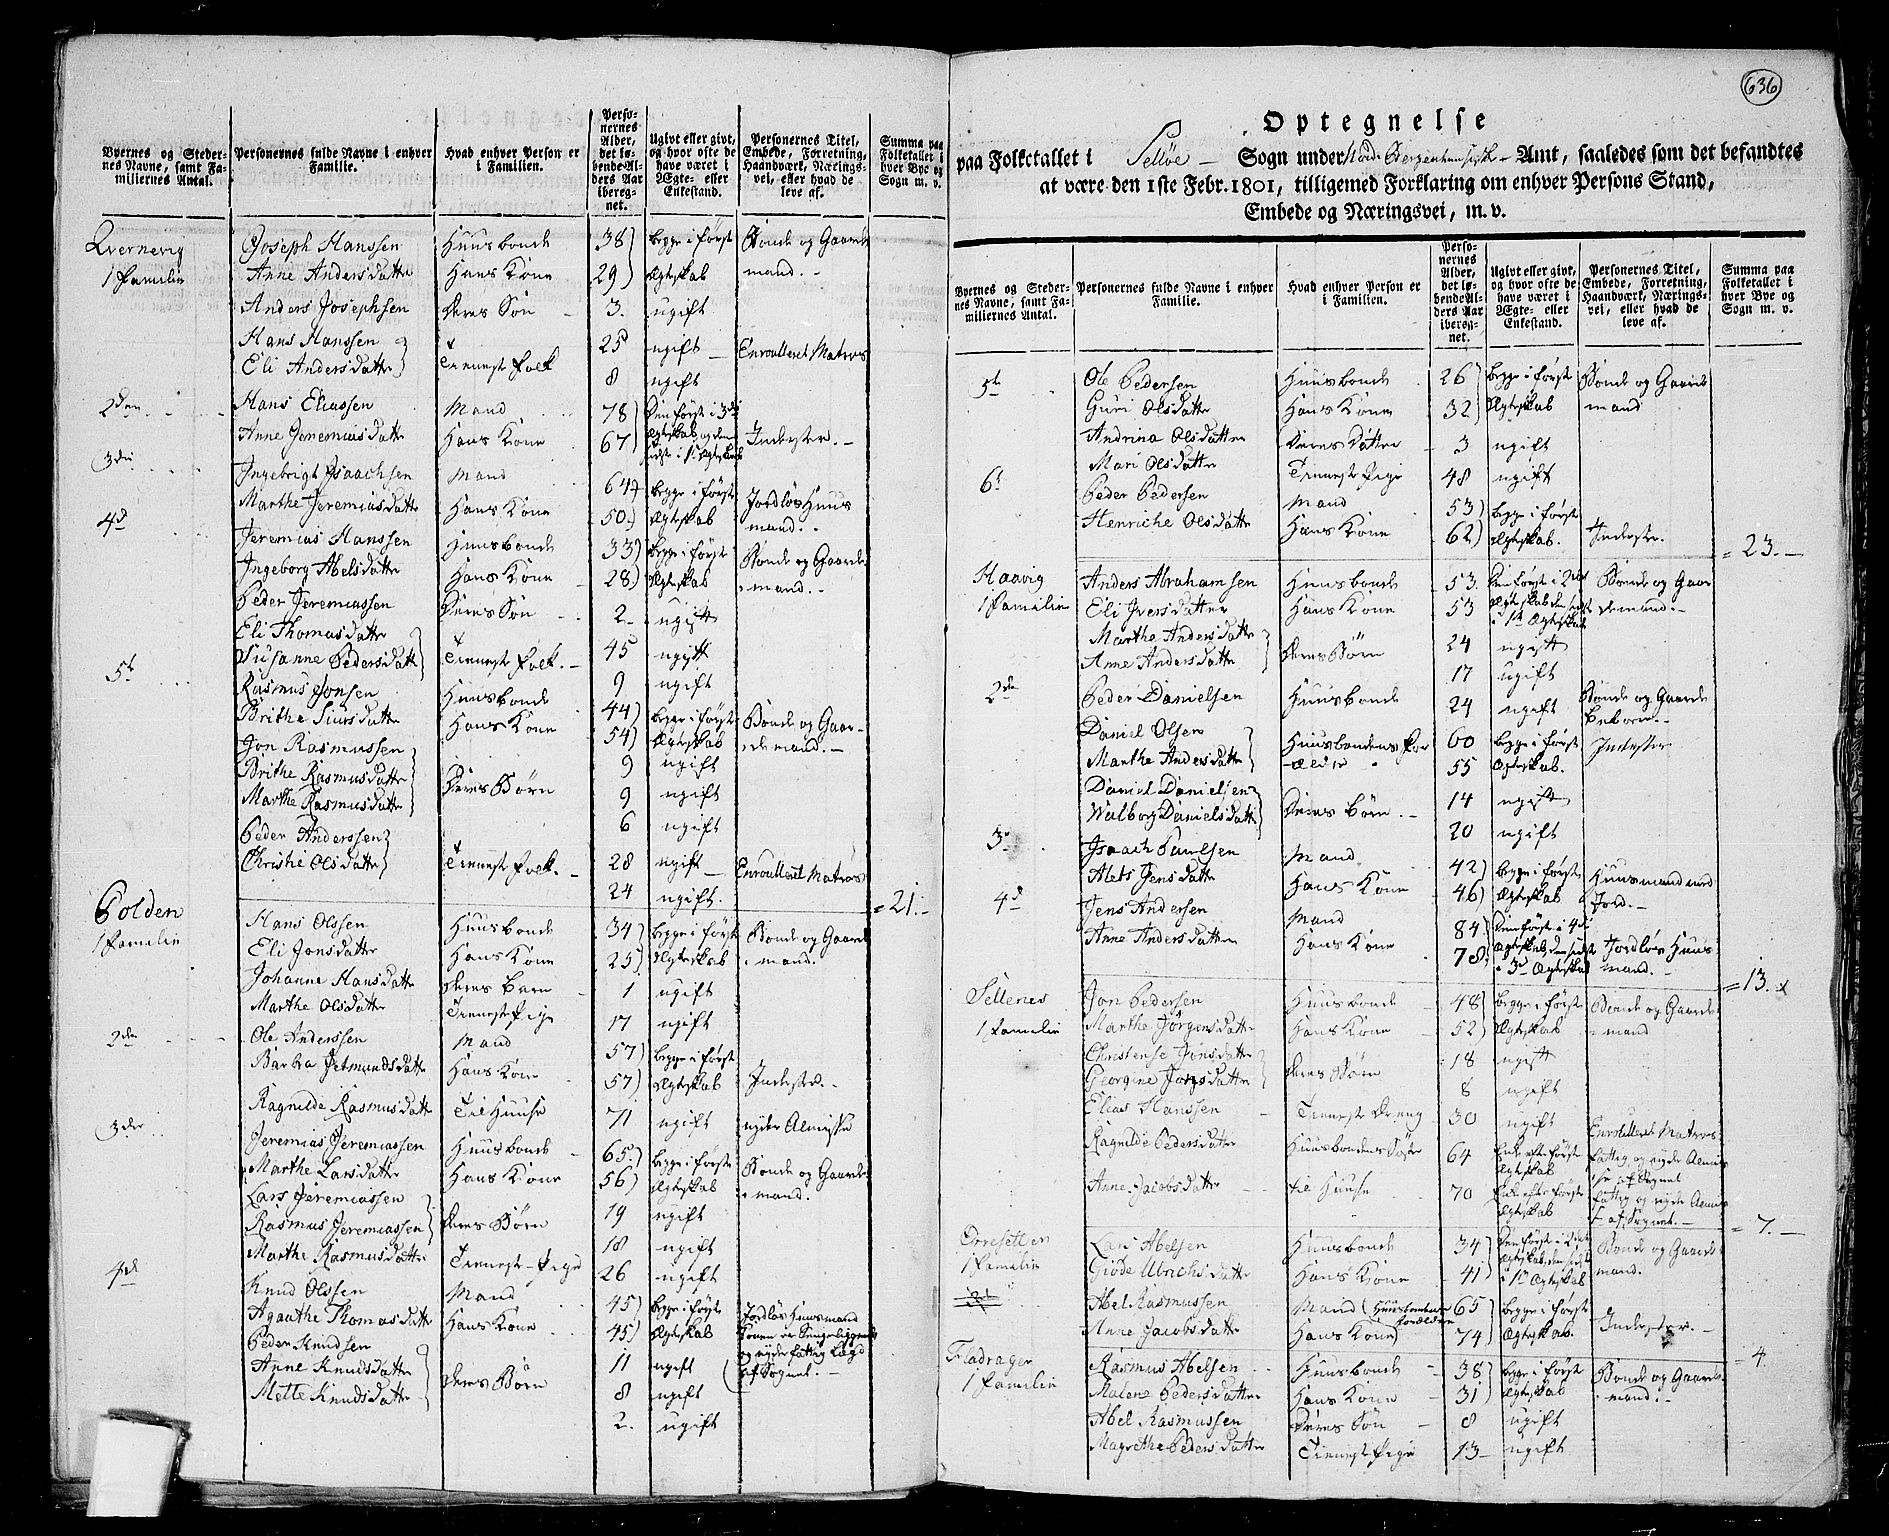 636
Byernes og Steder-
nes Navne, samt Fa-
miliernes Antal.
Personernes fulde Navne i enhver
Familie.
Hvad enhver Person er
i Familien.
Perso-
nernes
Alder,
det lø-
bende Al-
ders Aar
ibereg-
net.
Ugivt eller givt,
og hvor ofte de
have været i
Ægte- eller
Enkestand.
Personernes Titel,
Embede, Forretning,
Haandværk, Nærings-
vei, eller hvad de
leve af.
Summa paa
Folketallet i
hver Bye og
Sogn m. v.
Qvernevig Joseph Hanssen Huusbonde 38) begge i først Bonde og Gaard-
1 Familie Anne Andersdatter Hans Kone 29) Ægteskab mand.
Anders Josephsen Deres Søn 3. ugift
Hans Hanssen 25 ugift Enroulleret Matros
Eli Andersdatter Tienest Folk 8 ugift
2den Hans Eliassen Mand 78) Den først i 3die
Anne Jeremiasdatter Hans Kone 67) Ægteskab og den sidst i 1ste Ægteskab Inderster.
3die Ingebrigt Isaachsen Mand 64) begge i først Jordløs Huus
Marthe Jeremiasdatter Hans Kone 50.) Ægteskab mand.
4d Jeremias Hanssen Huusbonde 33) begge i først Bonde og Gaard-
Ingeborg Abelsdatter Hans Kone 28.) Ægteskab mand.
Peder Jeremiassen Deres Søn 2 ugift
Eli Thomasdatter 45 ugift
Susanne Pedersdatt Tienest Folk. 9 ugift
5t Rasmus Jonsen Huusbonde 44) begge i først Bonde og Gaar-
Brithe Siursdatter Hans Kone 54) Ægteskab demand.
Jon Rasmussen 9 ugift
Brithe Rasmusdatter Deres Børn 9 ugift
Marthe Rasmusdatter 6 ugift
Peder Anderssen 28 ugift Enroulleret Matros
Christie Olsdatter Tienest Folk. 24 ugift.
= 21.
Polden Hans Olssen Huusbonde 34) begge i først Bonde og Gaard-
1 Familie Eli Jonsdatter Hans Kone 25) Ægteskab mand.
Johanne Hansdatter Deres Barn 1 ugift
Marthe Olsdatter Tienest Pige 17 ugift
2den Ole Anderssen Mand 57) begge i først
Barbra Jetmundsdatter Hans Kone 57) Ægteskab Inderster.
Ragnilde Rasmusdatt Til Huuse 71 ugift nyder Almisse
3die Jeremias Jeremiassen Huusbond 65.) begge i først Bonde og Gaard-
Marthe Larsdatter Hans Kone 56) Ægteskab mand.
Lars Jeremiassen 19 ugift
Rasmus Jeremiassen Deres Børn 18 ugift
Marthe Rasmusdatter Tienest-Pige 26 ugift
4d Knud Olssen Mand 45) begge i først Jordløs Huusmand
Agauthe Thomasdatter Hans Kone 45) Ægteskab Konen er Sengeliggende
Peder Knudsen 11 ugift og nyder fattig Lægd
Anne Knudsdatter Deres Børn 8 ugift af Sognet.
Mette Knudsdatter 2. ugift
Optegnelse
paa Folketallet i Selløe Sogn under Nord Bergenhuusiske Amt, saaledes som det befandtes
at være den 1ste Febr. 1801, tilligemed Forklaring om enhver Persons Stand,
Embede og Næringsvei, m. v.
Byernes og Steder-
nes Navne, samt Fa-
miliernes Antal.
Personernes fulde Navne i enhver
Familie.
Hvad enhver Person er
i Familien.
Perso-
nernes
Alder,
det lø-
bende Al-
ders Aar
ibereg-
net.
Ugivt eller givt,
og hvor ofte de
have været i
Ægte- eller
Enkestand.
Personernes Titel,
Embede, Forretning,
Haandværk, Nærings-
vei, eller hvad de
leve af.
Summa paa
Folketallet i
hver Bye og
Sogn m. v.
5te Ole Pedersen Huusbonde 26) begge i først Bonde og Gaard
Guri Olsdatter Hans Kone 32) Ægteskab mand
Andrina Olsdatter Deres Datter 3 ugift
Mari Olsdatter Tienest Pige 48 ugift
6t Peder Pedersen Mand 53) begge i først
Henriche Olsdatter Hans Kone 62) Ægteskab. Inderster.
= 23.
Haavig Anders Abrahamsen Huusbonde 53. Den først i 2det Bonde og Gaar
1 Familie Eli Iversdatter Hans Kone 53 Ægteskab den sidst i 1ste Ægteskab demand.
Marthe Andersdatter 24 ugift
Anne Andersdatter Deres Børn 17 ugift
2den Peder Danielsen Huusbonde 24 ugift Bonde og Gaard
Daniel Olsen Huusbondens For 60 begge i først Inderster
Marthe Andersdatter -ælder 55 Ægteskab.
Daniel Danielsen 14 ugift
Walborg Danielsdatt Deres Børn. 20 ugift
3die Isaach Paulsen Mand 42) begge i først Huusmand med
Alets Jensdatter Hans Kone 46) Ægteskab Jord.
4d Jens Andersen Mand 84) Den først i 4de
Anne Andersdatter Hans Kone 78) Ægteskab, den sidst i 3d Ægteskab Jordløs Huus mand.
= 13.
Sellenes Jon Pedersen Huusbonde 48) begge i først Bonde og Gaard-
1 Familie Marthe Jørgensdatter Hans Kone 52) Ægteskab mand
Christense Jonsdatter 18 ugift
Georgine Jonsdatter Deres Børn 8 ugift
Elias Hanssen Tienest Dreng 30 ugift Enroulleret Matros
Ragnilde Pedersdatter Huusbondens Søster 64 Enke efter først Ægteskab fattig og nyder Almis-
se af Sognet
Anne Jacobsdatter til Huuse 70 Enke efter første Ægteskab fattig og nyder Almis-
se af Sognet.
= 7.
Orresetten Lars Abelsen Huusbonde 34) Den først i 2det Bonde og Gaard-
1 Familie Giøde Ulrichsdatter Hans Kone 41) Ægteskab, den sidst i 1te Ægteskab mand.
Abel Rasmussen Mand (Huusbondens 65) begge i først
Anne Jacobsdatter Hans Kone Forældre 74) Ægteskab. Inderster.
= 4.
Fladrager Rasmus Abelsen Huusbonde 38) begge i først Bonde og Gaard-
1 Familie Malene Pedersdatter Hans Kone 31) Ægteskab mand.
Abel Rasmussen Deres Søn 8 ugift
Magrethe Pedersdatter Tienest Pige 13 ugift